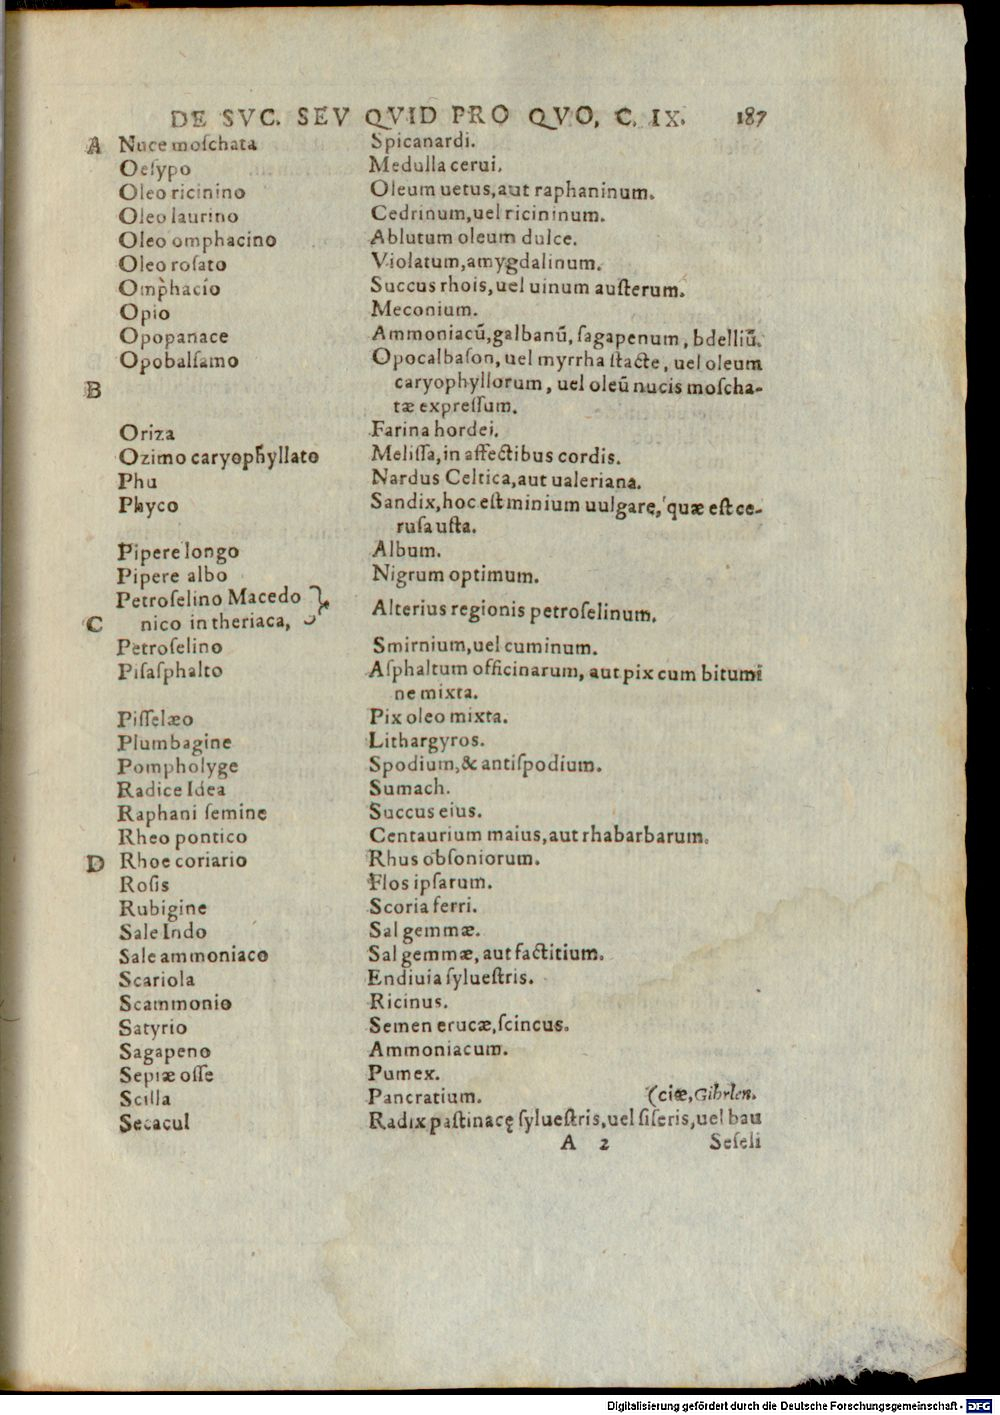 DE SVC. SEV QVID PRO QVO, C. IX. 187
A Nuce moſchata Spicanardi.
Oeſypo Medulla cerui.
Oleo ricinino Oleum uetus, aut raphaninum.
Oleo laurino Cedrinum, uel ricininum.
Oleo omphacino Ablutum oleum dulce.
Oleo roſato Violatum, amygdalinum.
Omphacio Succus rhois, uel uinum auſterum.
Opio Meconium.
Opopanace Ammoniacũ, galbanũ, ſagapenum, bdelliũ.
Opobalſamo Opocalbaſon, uel myrrha ſtacte, uel oleum
B caryophyllorum, uel oleũ nucis moſcha-
tæ expreſſum.
Oriza Farina hordei.
Ozimo caryophyllato Meliſſa, in affectibus cordis.
Phu Nardus Celtica, aut ualeriana.
Phyco Sandix, hoc eſt minium uulgare, quæ eſt ce-
ruſa uſta.
Pipere longo Album.
Pipere albo Nigrum optimum.
Petroſelino Macedo
C nico in theriaca, } Alterius regionis petroſelinum.
Petroſelino Smirnium, uel cuminum.
Piſaſphalto Aſphaltum officinarum, aut pix cum bitumi
ne mixta.
Piſſelæo Pix oleo mixta.
Plumbagine Lithargyros.
Pompholyge Spodium, & antiſpodium.
Radice Idea Sumach.
Raphani ſemine Succus eius.
Rheo pontico Centaurium maius, aut rhabarbarum.
D Rhoe coriario Rhus obſoniorum.
Roſis Flos ipſarum.
Rubigine Scoria ferri.
Sale Indo Sal gemmæ.
Sale ammoniaco Sal gemmæ, aut factitium.
Scariola Endiuia ſylueſtris.
Scammonio Ricinus.
Satyrio Semen erucæ, ſcincus.
Sagapeno Ammoniacum.
Sepiæ oſſe Pumex.
Scilla Pancratium. (ciæ, Gibrlen.
Secacul Radix paſtinacę ſylueſtris, uel ſiſeris, uel bau
A 2 Seſeli
Digitalisierung gefördert durch die Deutsche Forschungsgemeinschaft - DFG